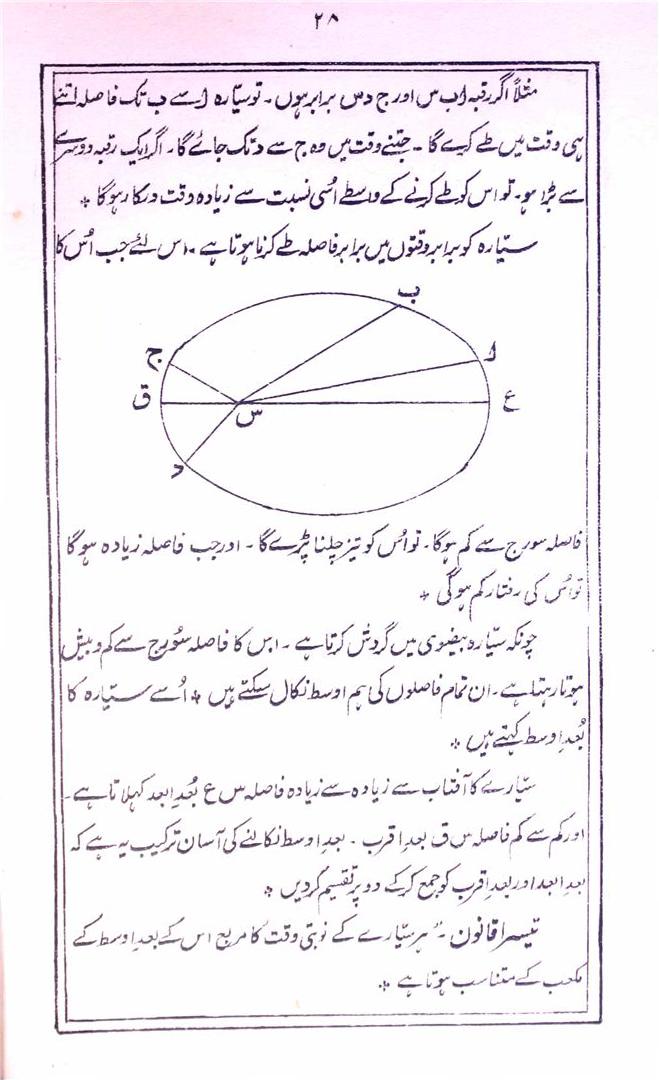 ۲۸
مثلاً اگر رقبہ ا ب س اور ج د س برابر ہوں ۔ تو سیّارہ ا سے ب تک فاصلہ اتنے
ہی وقت میں طے کرے گا ۔ جتنے وقت میں وہ ج سے د تک جائے گا ۔ اگر ایک رقبہ دوسرے
سے بڑا ہو ۔ تو اس کو طے کرنے کے واسطے اُسی نسبت سے زیادہ وقت درکار ہوگا *
سیّارہ کو برابر وقتوں میں برابر فاصلہ طے کرنا ہوتا ہے ۔ اس لئے جب اُس کا
ب
ا
ج
ق
س
ع
د
فاصلہ سورج سے کم ہوگا ۔ تو اُس کو تیز چلنا پڑے گا ۔ اور جب فاصلہ زیادہ ہوگا
تو اُس کی رفتار کم ہوگی *
چونکہ سیّارہ بیضوی میں گردش کرتا ہے ۔ اس کا فاصلہ سُورج سے کم و بیش
ہوتا رہتا ہے ۔ ان تمام فاصلوں کی ہم اوسط نکال سکتے ہیں * اُسے سیّارہ کا
بُعدِ اوسط کہتے ہیں *
سیّارے کا آفتاب سے زیادہ سے زیادہ فاصلہ س ع بُعدِ ابعد کہلاتا ہے ۔
اور کم سے کم فاصلہ س ق بعدِ اقرب ۔ بعدِ اوسط نکالنے کی آسان ترکیب یہ ہے کہ
بعدِ ابعد اور بعدِ اقرب کو جمع کرکے دو پر تقسیم کردیں *
تیسرا قانون ۔ "ہر سیّارے کے نوبتی وقت کا مربع اس کے بعدِ اوسط کے
مکعب کے متناسب ہوتا ہے *